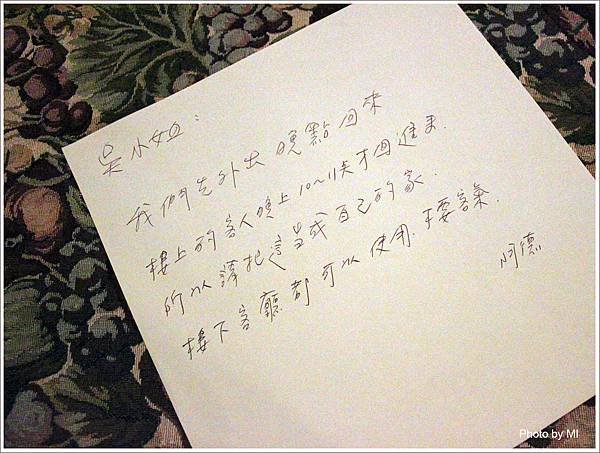 吳小姐：
我們先外出 晚點回來
樓上的客人晚上10~11點才回進來.
所以請把這當成自己的家.
樓下客廳都可以使用.不要客氣.
阿德
Photo by MI